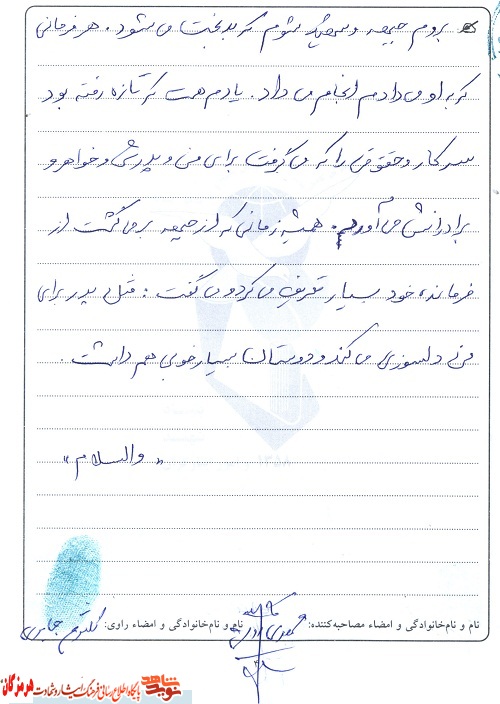 بروم جبهه و شهید شوم که بدبخت می‌شود. هر فرمانی
که به او می‌دادم انجام می‌داد. یادم هست که تازه رفته بود
سر کار و حقوقش را که می‌گرفت برای من و پدرش و خواهر و
برادرانش می‌آورد. همیشه زمانی که از جبهه برمی‌گشت از
فرمانده خود بسیار تعریف می‌کرد و می‌گفت: مثل پدر برای
من دلسوزی می‌کند و دوستان بسیار خوبی هم داشت.
«والسلام»
نام و نام‌خانوادگی و امضاء مصاحبه‌کننده: نام و نام‌خانوادگی و امضاء راوی: کلثوم جابری
نوید شاهد پایگاه اطلاع رسانی فرهنگ ایثار و شهادت هرمزگان